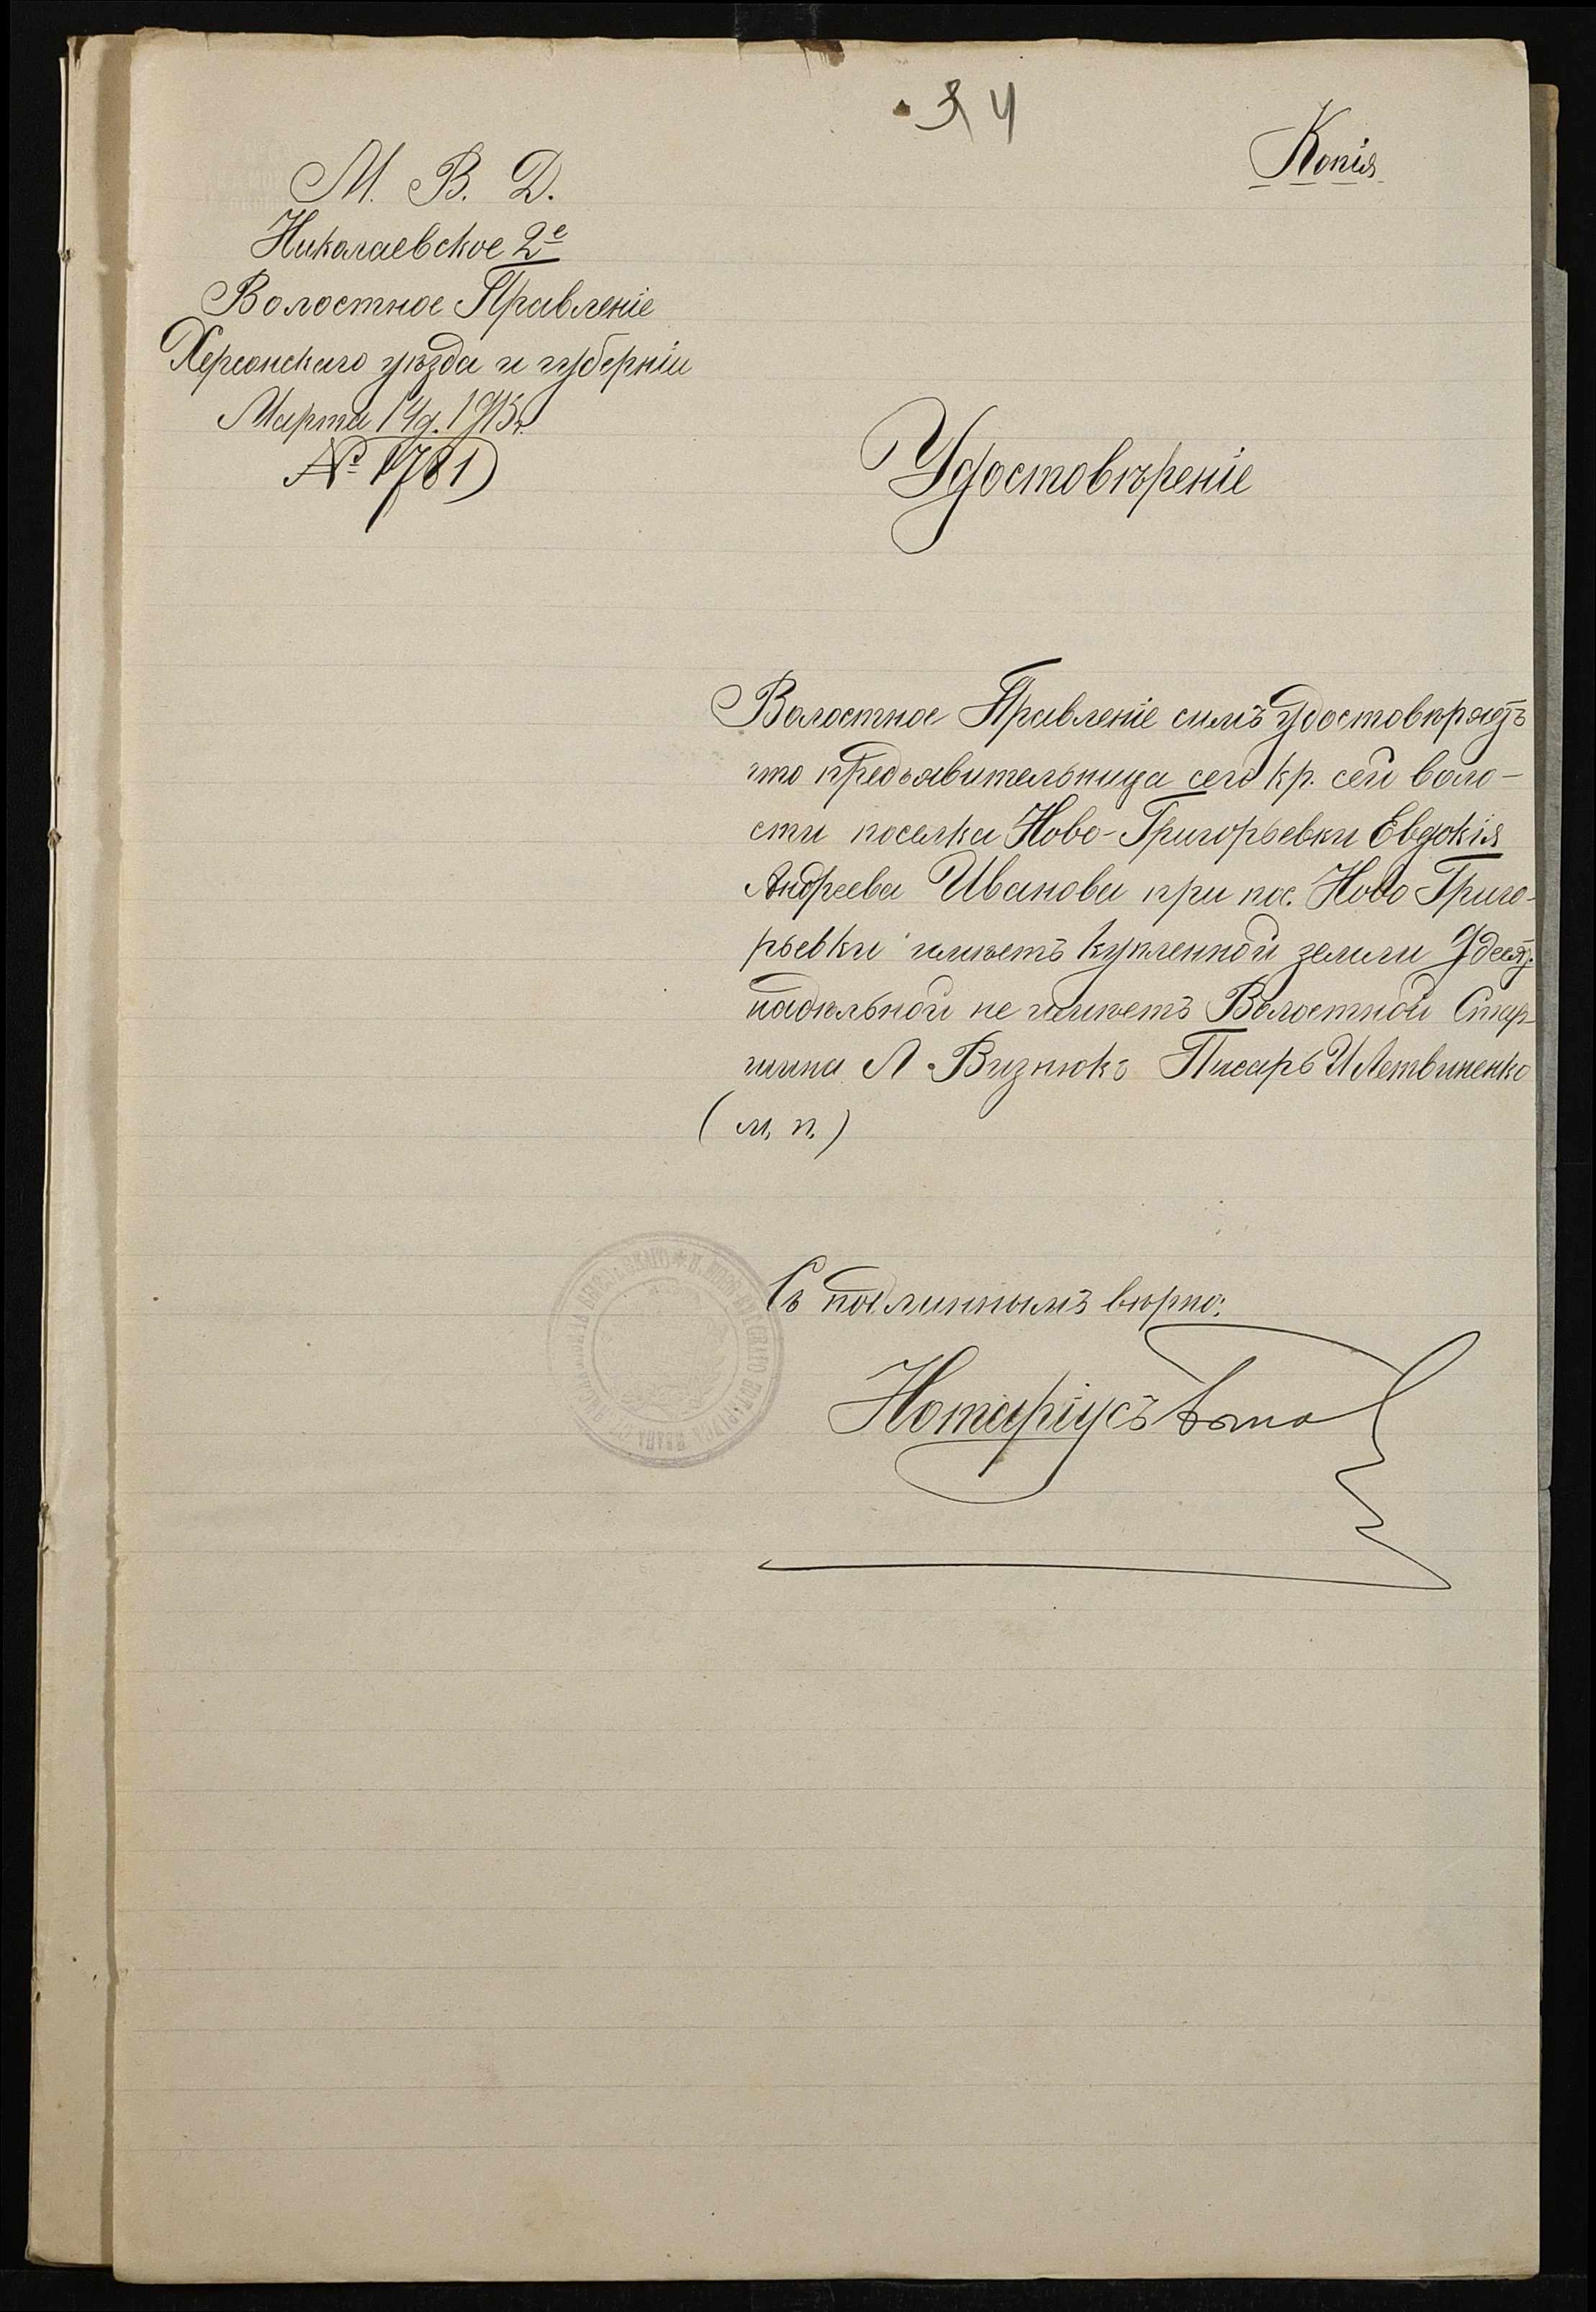 4
Копія
М. В. Д.
Николаевское 2е
Волостное Правленіе
Херсонскаго уѣзда и губерніи
Марта 14 д. 1915 г.
№ 1781
Удостовѣреніе
Волостное Правленіе симъ удостовѣряетъ
что предъявительница сего кр. сей воло-
сти поселка Ново-Григорьевки Евдокія
Андреева Иванова при пос. Ново Григо-
рьевки имѣетъ купленной земли 9 десят.
надѣльной не имѣетъ Волостной Стар-
шина Л Визнюкъ Писарь И Летвиненко
(м. п.)
Съ подлиннымъ вѣрно:
Нотаріусъ